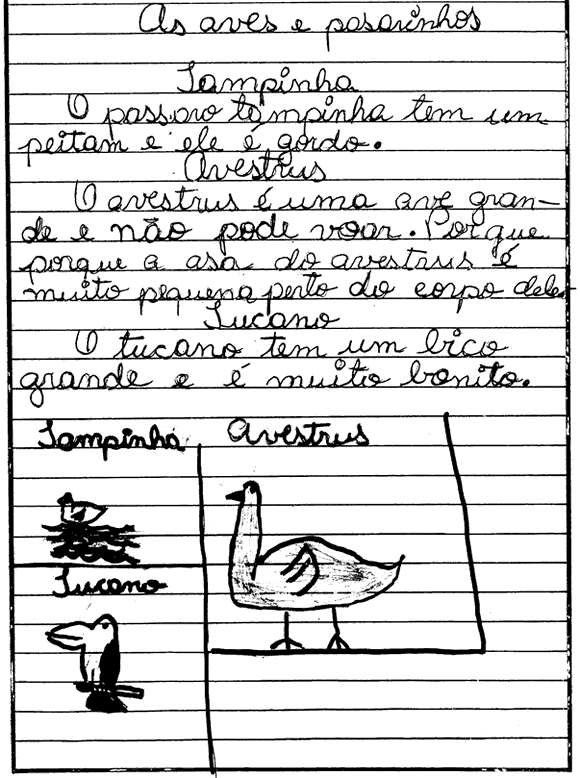 As aves e pasarinhos
Tampinha
O passoro tampinha tem um
peitam e ele é gordo.
Avestrus
O avestrus é uma ave gran-
de e não pode voar. Porque
porque a asa do avestrus é
muito pequena perto do corpo dele.
Tucano
O tucano tem um bico
grande e é muito bonito.
Tampinha
Avestrus
Tucano